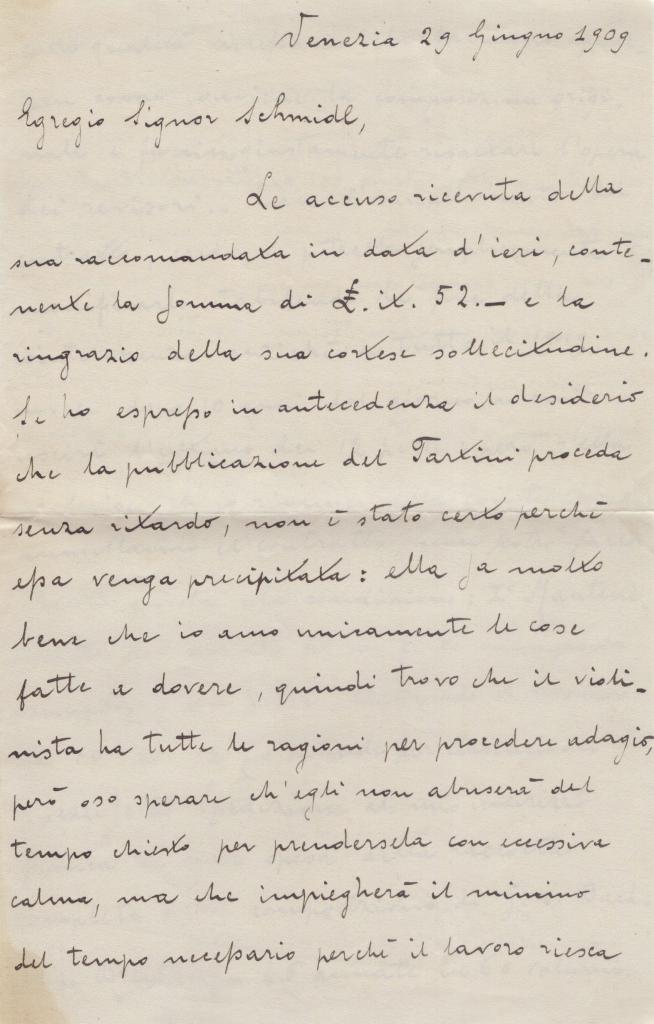 Venezia 29 Giugno 1909
Egregio Signor Schmidl,
Le accuso ricevuta della
sua raccomandata in data d'ieri, conte-
nente la somma di £. it. 52.— e la
ringrazio della sua cortese sollecitudine.
Se ho espresso in antecedenza il desiderio
che la pubblicazione del Tartini proceda
senza ritardo, non è stato certo perchè
essa venga precipitata: ella sa molto
bene che io amo unicamente le cose
fatte a dovere, quindi trovo che il violi-
nista ha tutte le ragioni per procedere adagio,
però oso sperare ch'egli non abuserà del
tempo chiesto per prendersela con eccessiva
calma, ma che impiegherà il minimo
del tempo necessario perchè il lavoro riesca